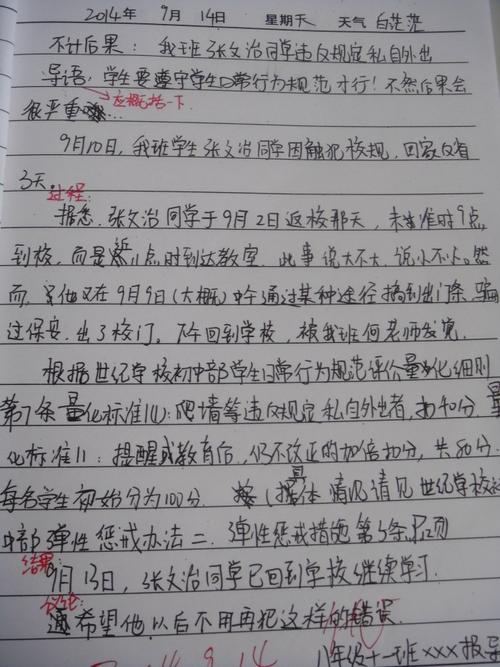 2014年 9月 14日 星期天 天气 白茫茫
不计后果：我班张文治同学违反规定私自外出
导语：学生要遵守学生日常行为规范才行！不然后果会
应概括一下
很严重……
9月10日，我班学生张文治同学因触犯校规，回家反省
3天。
过程：
据悉，张文治同学于9月2日返校那天，未准时9点
到校，而是近11点时到达教室。此事说大不大，说小不小。然
而，他又在9月9日(大概)中午通过某种途径搞到出门条，骗
过保安，出了校门。下午回到学校，被我班何老师发觉。
根据世纪学校初中部学生日常行为规范评价量化细则
第7条量化标准(4)：爬墙等违反规定私自外出者，扣40分，量
化标准11：提醒或教育后，仍不改正的加倍扣分，共80分.
每名学生初始分为100分. (具体情况请见世纪学校初
中部弹性惩戒办法二. 弹性惩戒措施 第3条.P12页
结果：
9月13日，张文治同学已回到学校继续学习.
议论：
希望他以后不用再犯这样的错误.
八年级十一班xxx报导